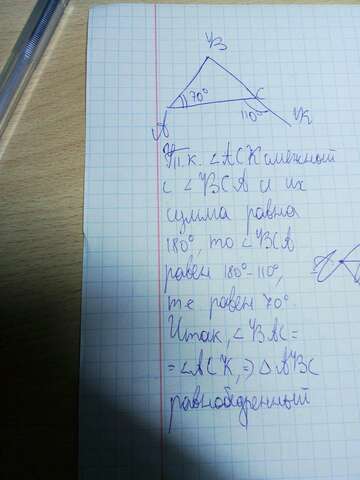 В
70°
С
110°
К
А
Т.к. ∠АСК смежный
с ∠ВСА и их
сумма равна
180°, то ∠ВСА
равен 180°-110°,
т.е равен 70°.
Итак, ∠ВАС=
=∠АСК, ⇒ △АВС
равнобедренный